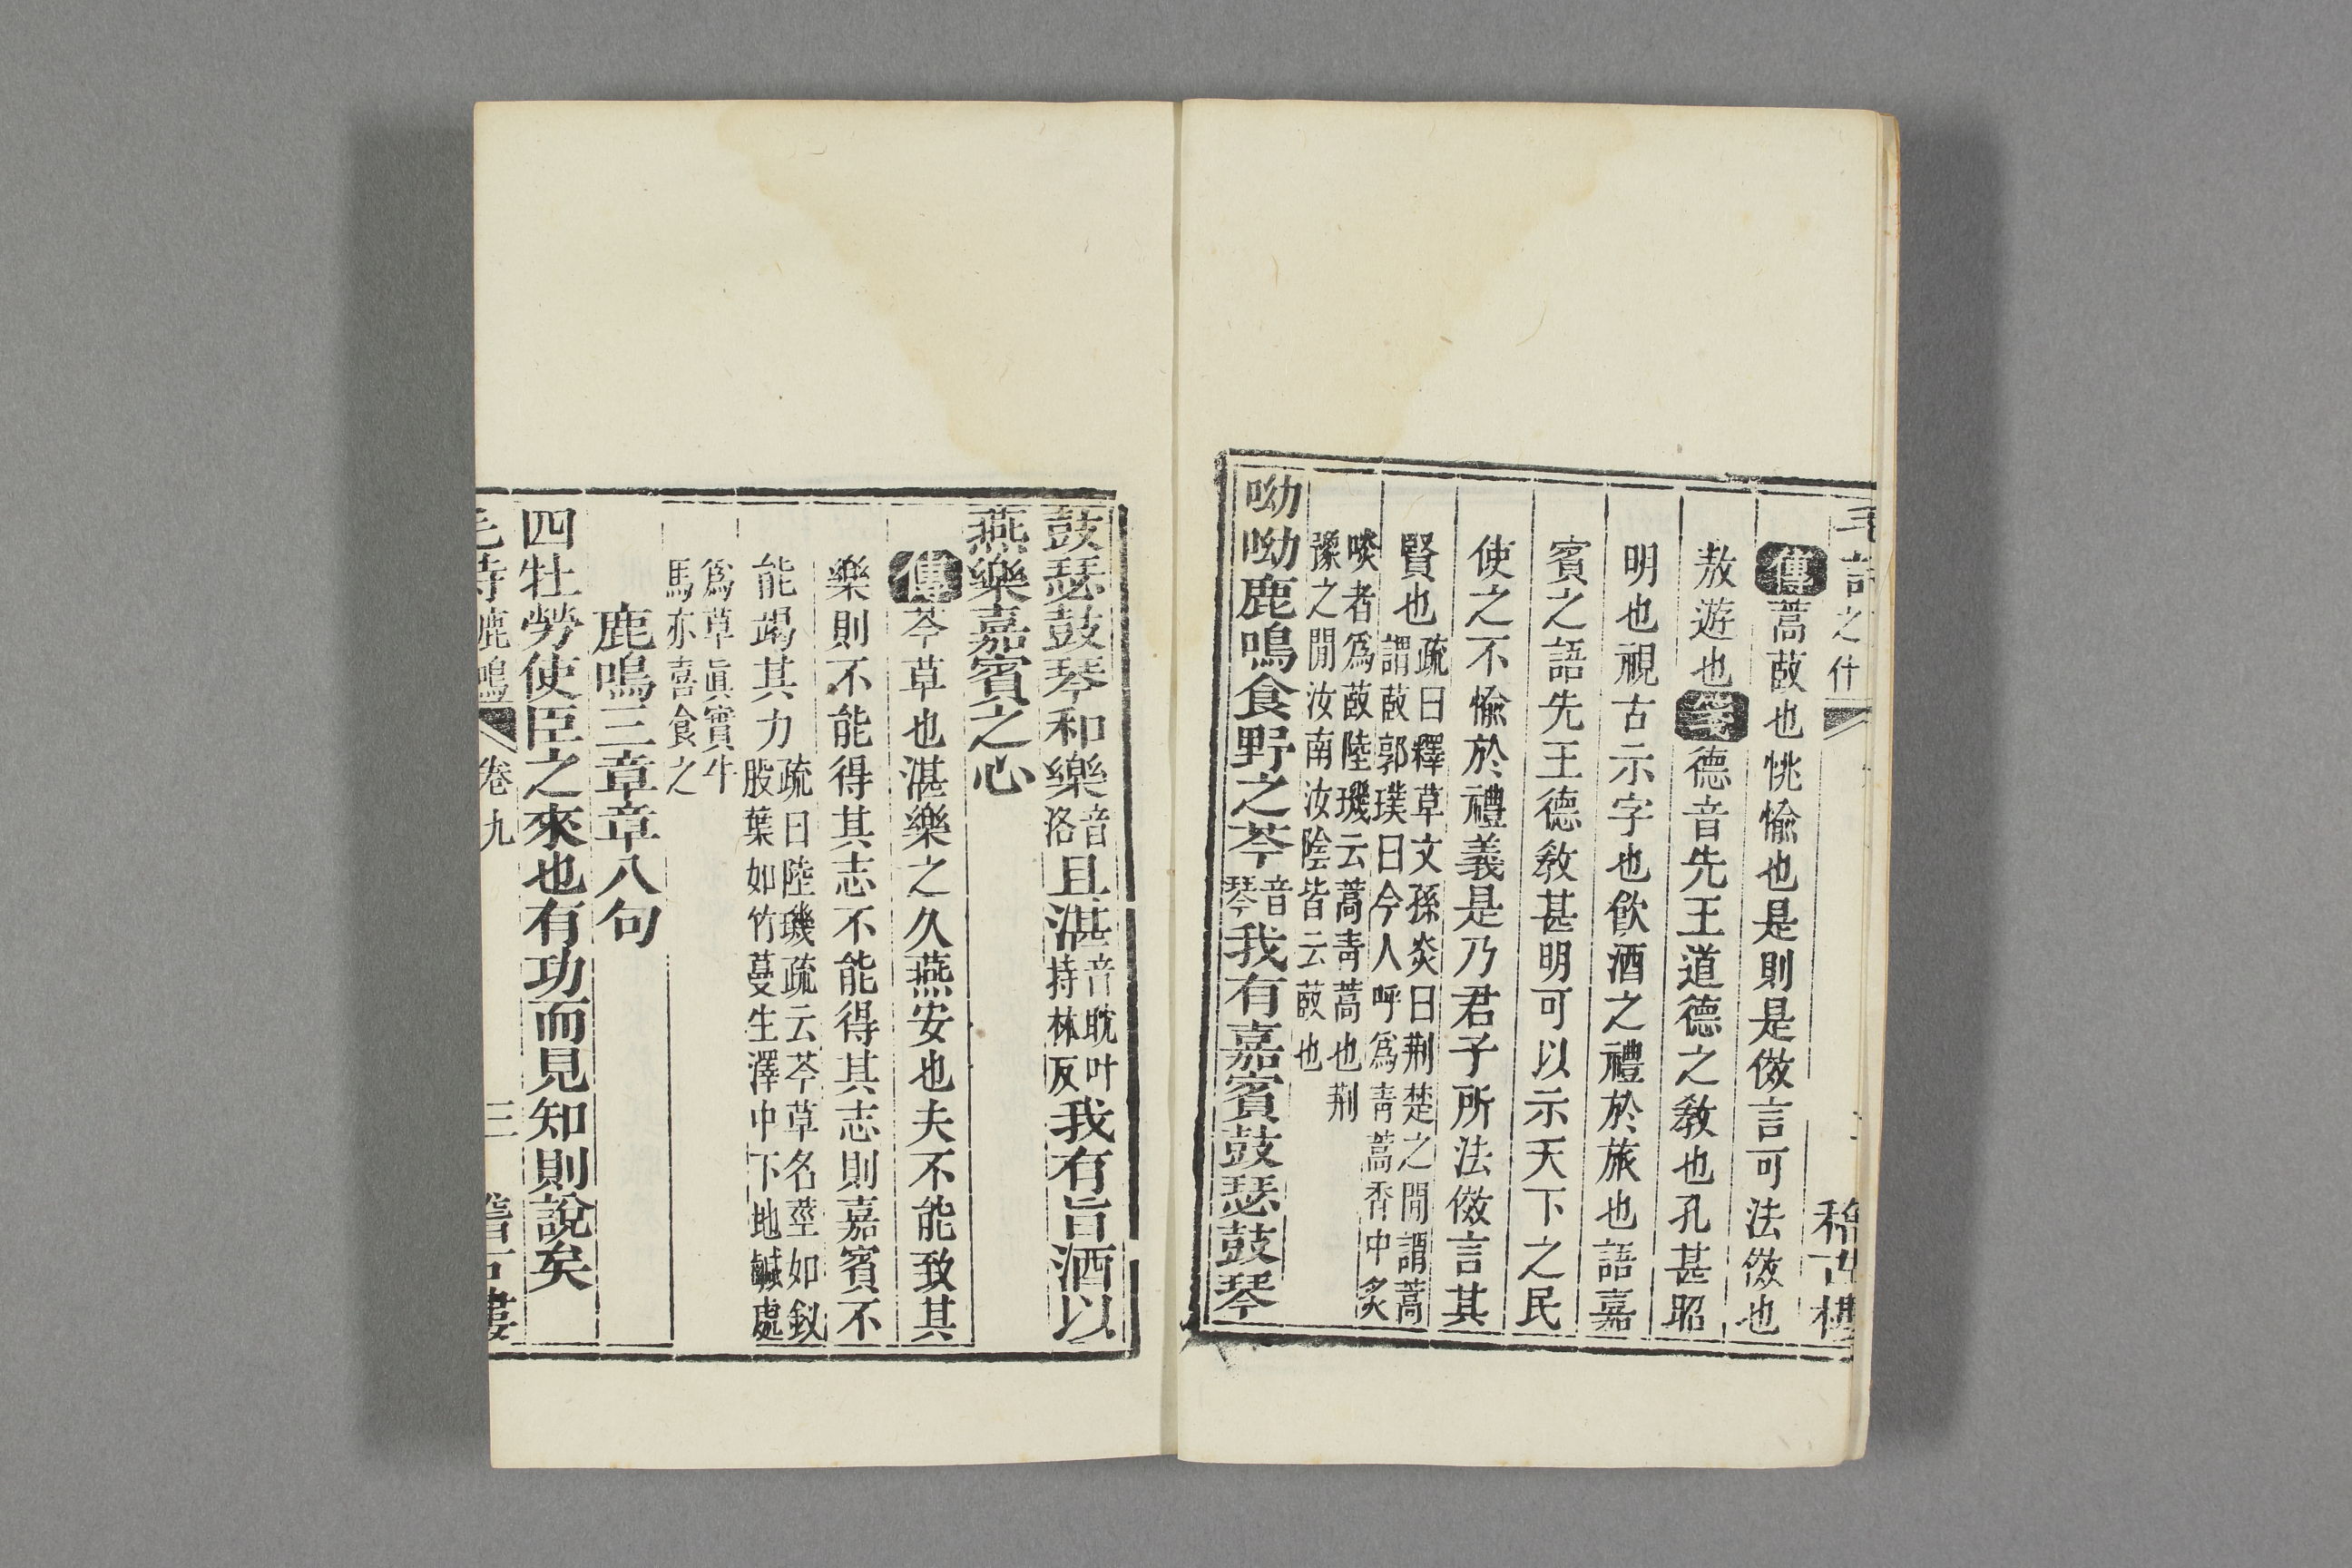 傳蒿菣也恌愉也是則是傚言可法傚也
敖遊也箋德音先王道德之敎也孔甚昭
明也視古示字也飮酒之禮於旅也語嘉
賓之語先王德敎甚明可以示天下之民
使之不愉於禮義是乃君子所法傚言其
賢也疏曰釋草文孫炎曰荆楚之閒謂蒿
謂菣郭璞曰今人呼爲靑蒿香中炙
啖者爲菣陸璣云蒿靑蒿也荆
豫之閒汝南汝陰皆云菣也
呦呦鹿鳴食野之芩音琴我有嘉賓鼓瑟鼓琴
鼓瑟鼓琴和樂音洛且湛音耽叶持林反我有旨酒以
燕樂嘉賓之心
傳芩草也湛樂之久燕安也夫不能致其
樂則不能得其志不能得其志則嘉賓不
能竭其力疏曰陸璣疏云芩草名莖如釵
股葉如竹蔓生澤中下地鹹處
爲草眞實牛
馬亦喜食之
鹿鳴三章章八句
四牡勞使臣之來也有功而見知則說矣
毛詩鹿鳴 卷九 三 稽古樓